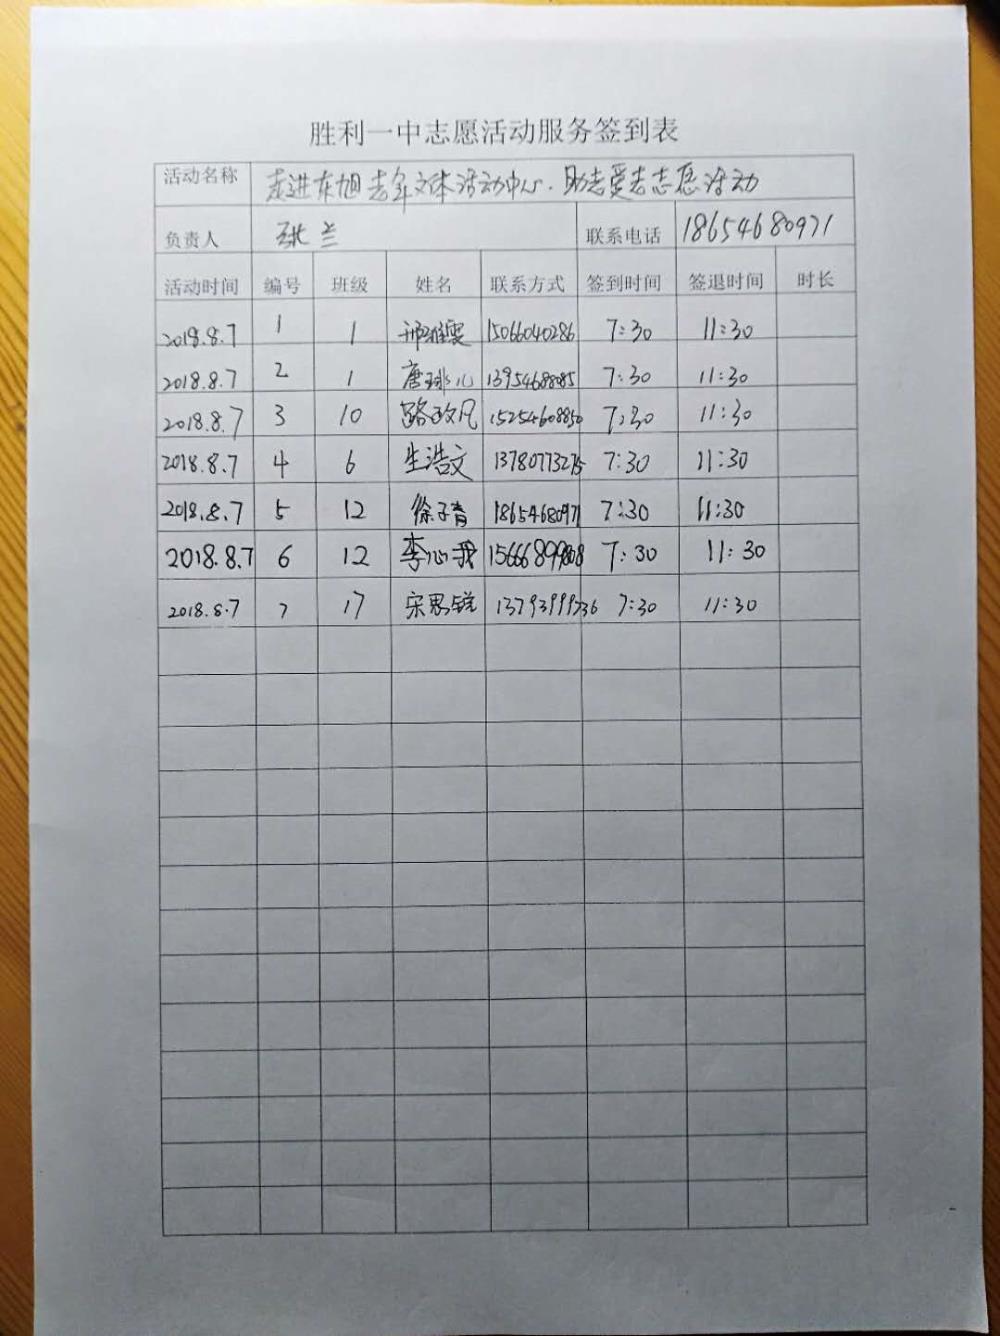 胜利一中志愿活动服务签到表
活动名称 走进东旭老年文体活动中心、助老爱老志愿活动
负责人 张兰 联系电话 18654680971
活动时间 编号 班级 姓名 联系方式 签到时间 签退时间 时长
2018.8.7 1 1 邢雅雯 15066040286 7:30 11:30
2018.8.7 2 1 唐 儿 13954688085 7:30 11:30
2018.8.7 3 10 路政凡 15254608850 7:30 11:30
2018.8.7 4 6 生浩文 13780773275 7:30 11:30
2018.8.7 5 12 徐子青 18654680971 7:30 11:30
2018.8.7 6 12 李心 7:30 11:30
2018.8.7 7 17 宋思锐 13793999736 7:30 11:30